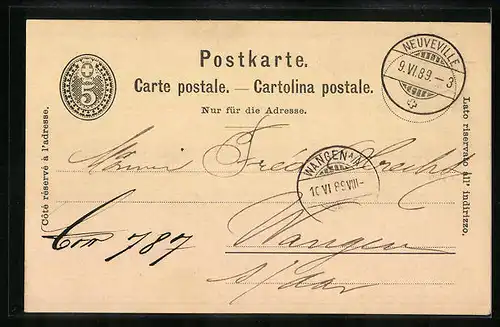 Postkarte.
Carte postale. — Cartolina postale.
Nur für die Adresse.
5
NEUVEVILLE
9.VI.89.-3
Côté réservé à l'adresse.
Lato riservato all' indirizzo.
WANGEN
VI 89 VIII-
787
Wangen
s/Aar